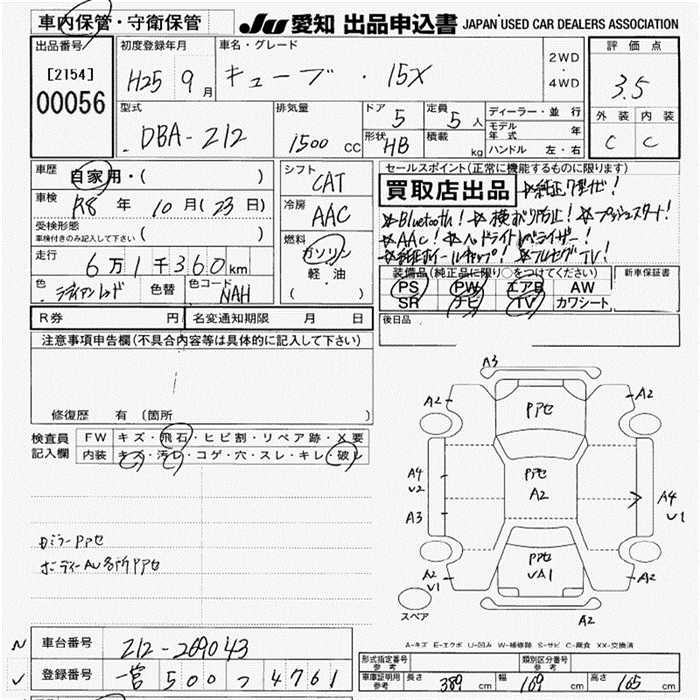 車内保管・守衛保管
JU 愛知 出品申込書 JAPAN USED CAR DEALERS ASSOCIATION
出品番号
[2154]
00056
初度登録年月
H25 9月
車名・グレード
キューブ ・ 15X
2WD
・
4WD
評価点
3.5
外装 内装
C C
型式
DBA-Z12
排気量
1500 CC
ドア 5
形状 HB
定員 5人
積載 kg
ディーラー・並行
モデル年式 年
ハンドル 左・右
車歴 自家用・( )
車検 R8年 10月(23日)
受検形態
車検付きのみ記入して下さい ( )
走行 6万1千360km
色 ラディアントレッド 色替 色コード NAH
シフト CAT
冷房 AAC
燃料
ガソリン
軽・油
( )
セールスポイント(正常に機能するものに限ります)
買取店出品
☆Bluetooth! ☆横すべり防止! ☆プッシュスタート!
☆AAC! ☆ヘッドライトレベライザー!
☆純正ホイールキャップ! ☆フルセグTV!
装備品(純正品に限り○をつけてください)
PS PW エアB AW
SR ナビ TV カワシート
新車保証書
後日品
R券 円 名変通知期限 月 日
注意事項申告欄(不具合内容等は具体的に記入して下さい)
修復歴 有 (箇所 )
検査員記入欄
FW キズ・飛石・ヒビ割・リペア跡・X要
内装 キズ・汚レ・コゲ・穴・スレ・キレ・破レ
カミラーPアセ
ボディーAU各所Pアセ
A3
A2 Pアセ A2
A4
V2
Pアセ
A2
A4
V1
A3
A2
V1
Pアセ
VA1
A2
スペア
A2
A-キズ E-エクボ U-凹み W-補修跡 S-サビ C-腐食 XX-交換済
N 車台番号 Z12-269043
✓ 登録番号 一宮 500 つ 4761
形式指定番号 参考 類別区分番号 参考
車庫証明用 参考 長さ 389 cm 幅 169 cm 高さ 165 cm